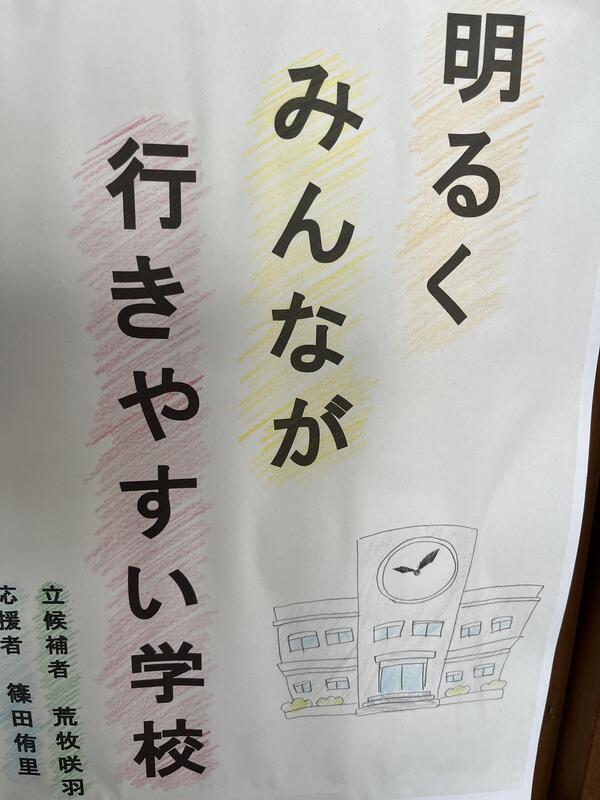 明るく
みんなが
行きやすい学校
立候補者 荒牧咲羽
応援者 篠田侑里